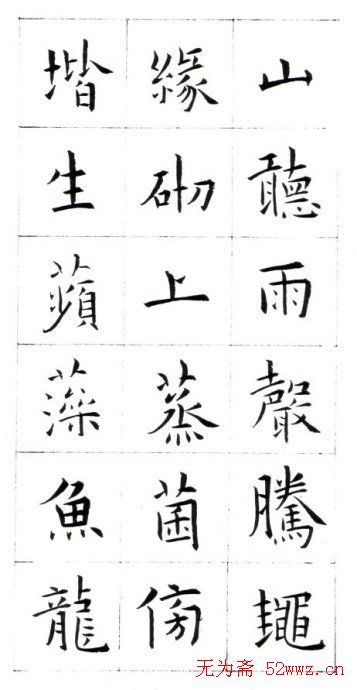 山聽雨聲騰蠅
緣砌上蒸菌傍
堦生蘋藻魚龍
无为斋 52wwz.cn